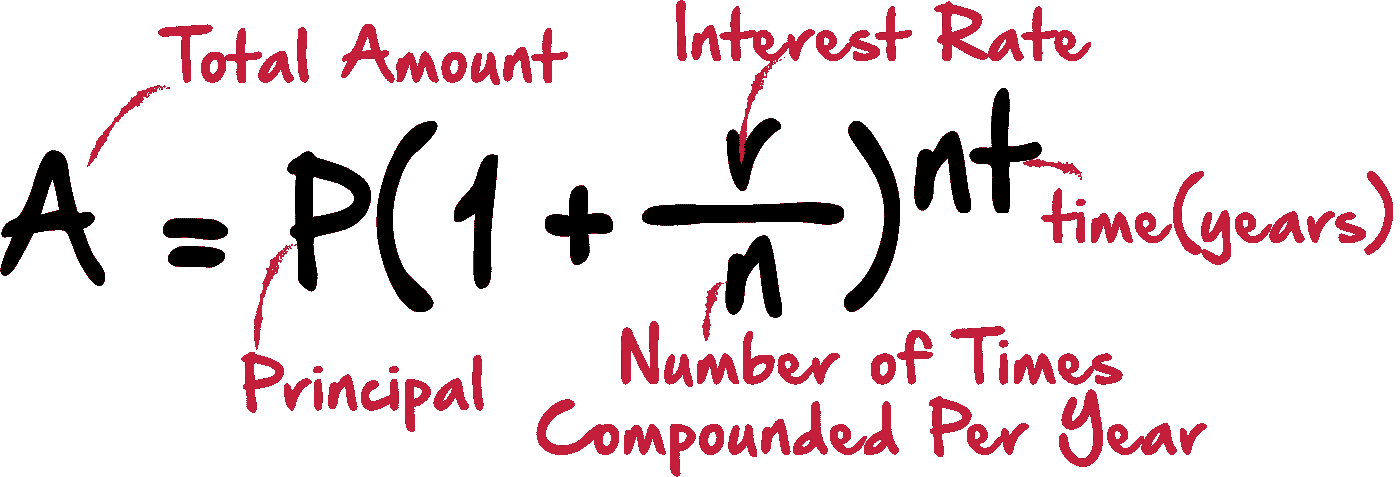 Total Amount
Interest Rate
A = P(1 + r/n)^nt
time(years)
Principal
Number of Times
Compounded Per Year